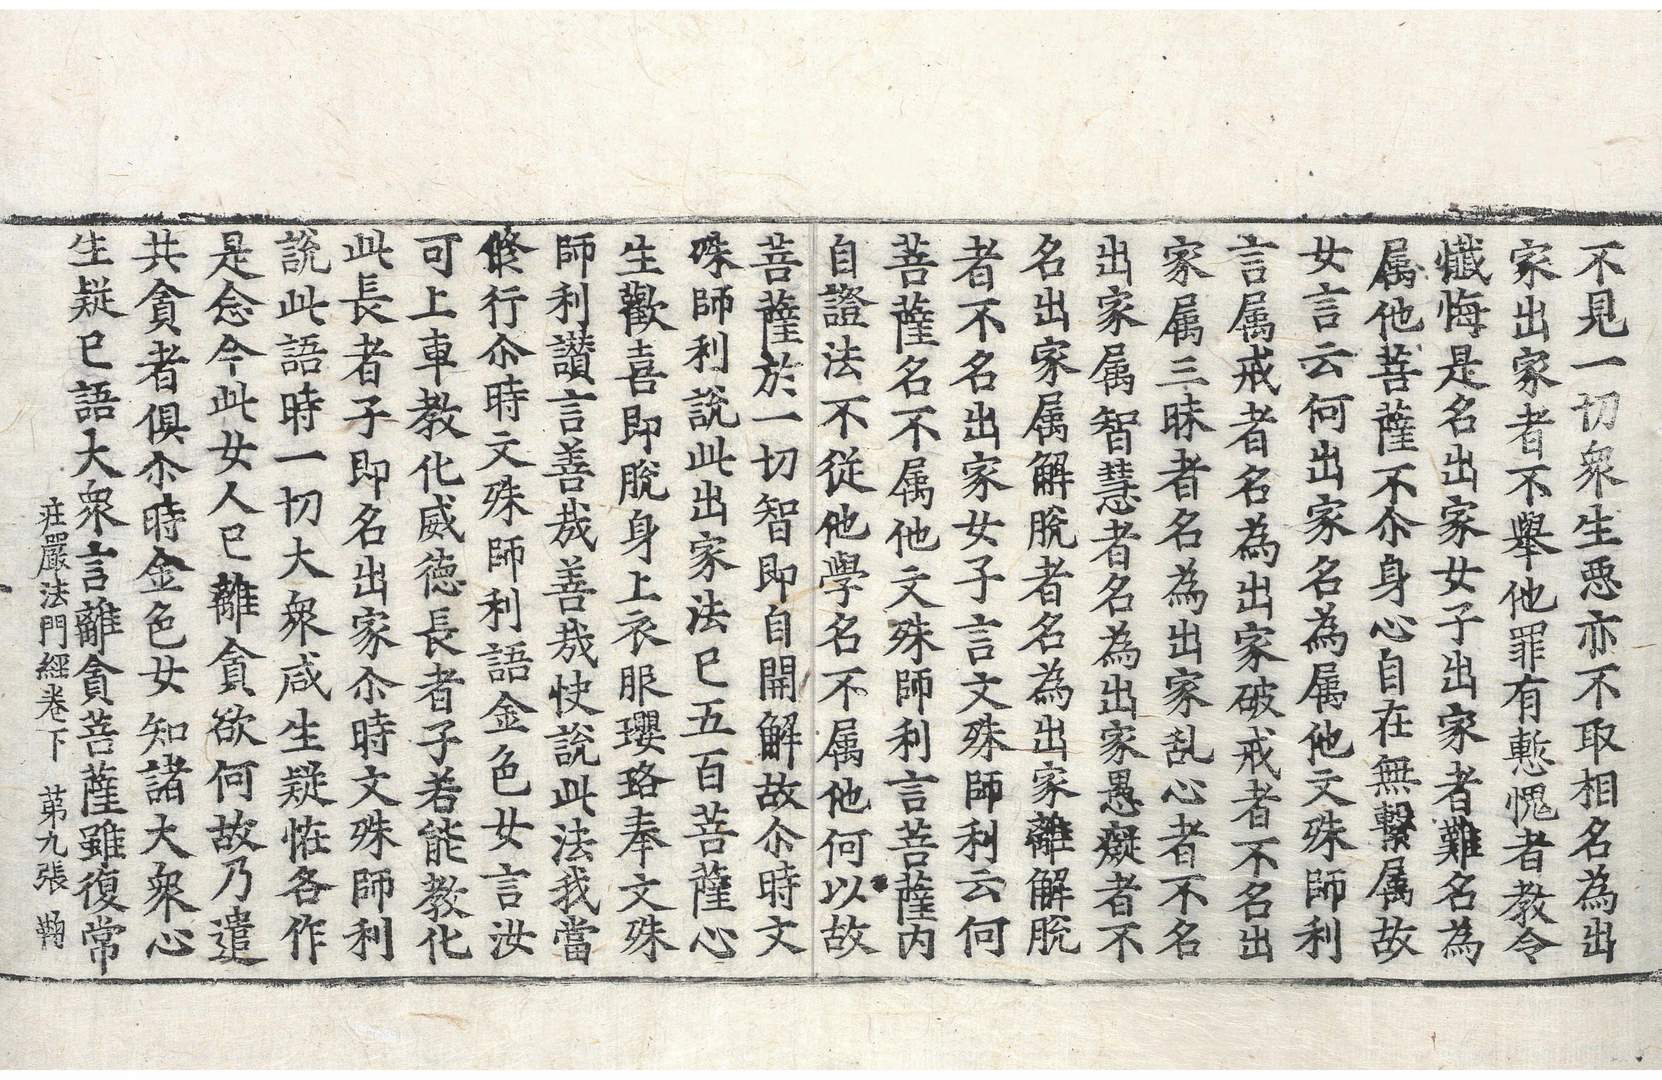 不見一切衆生悪亦不取相名為出
家出家者不舉他罪有慙愧者教令
懺悔是名出家女子出家者難名為
属他菩薩不尒身心自在無繫属故
女言云何出家名為属他文殊師利
言属戒者名為出家破戒者不名出
家属三昧者名為出家乱心者不名
出家属智慧者名為出家愚癡者不
名出家属解脫者名為出家離解脫
者不名出家女子言文殊師利云何
菩薩名不属他文殊師利言菩薩内
自證法不從他學名不属他何以故
菩薩於一切智即自開解故尒時文
殊師利說此出家法已五百菩薩心
生歡喜即脫身上衣服瓔珞奉文殊
師利讚言善哉善哉快說此法我當
修行尒時文殊師利語金色女言汝
可上車教化威德長者子若能教化
此長者子即名出家尒時文殊師利
說此語時一切大衆咸生疑恠各作
是念今此女人已離貪欲何故乃遣
共貪者俱尒時金色女知諸大衆心
生疑已語大衆言離貪菩薩雖復常
莊嚴法門經卷下 苐九張 鞠